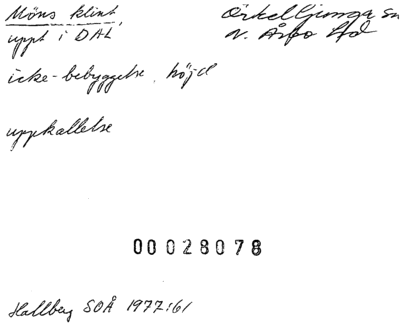 Möns klint, Örkelljunga sn
uppt i DAL N. Åsbo hd
icke-bebyggelse, höjd
uppkallelse
00028078
Hallberg SOÅ 1977:61